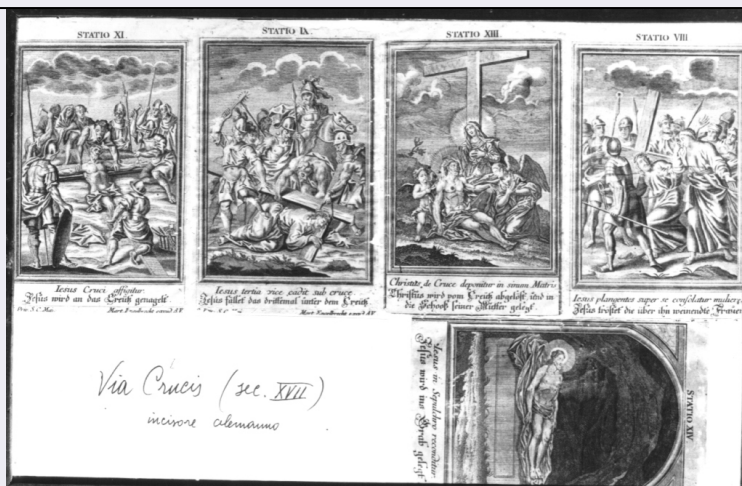 STATIO XI.
Iesus Cruci affigitur.
Jesus wird an das Creütz genagelt
STATIO IX.
Iesus tertia vice cadit sub cruce
Jesus fället das drittemal unter dem Creütz
STATIO XIII.
Christus de Cruce deponitur in sinum Matris
Christus wird vom Creütz abgelöst, und in
die Schooß seiner Mutter gelegt.
STATIO VIII
Iesus plangentes super se consolatur
Jesus tröstet die über ihn weinende
STATIO XIV.
Iesus in Sepulcro reconditur
Jesus wird ins Grab gelegt
Via Crucis (sec. XVII)
incisore alemanno